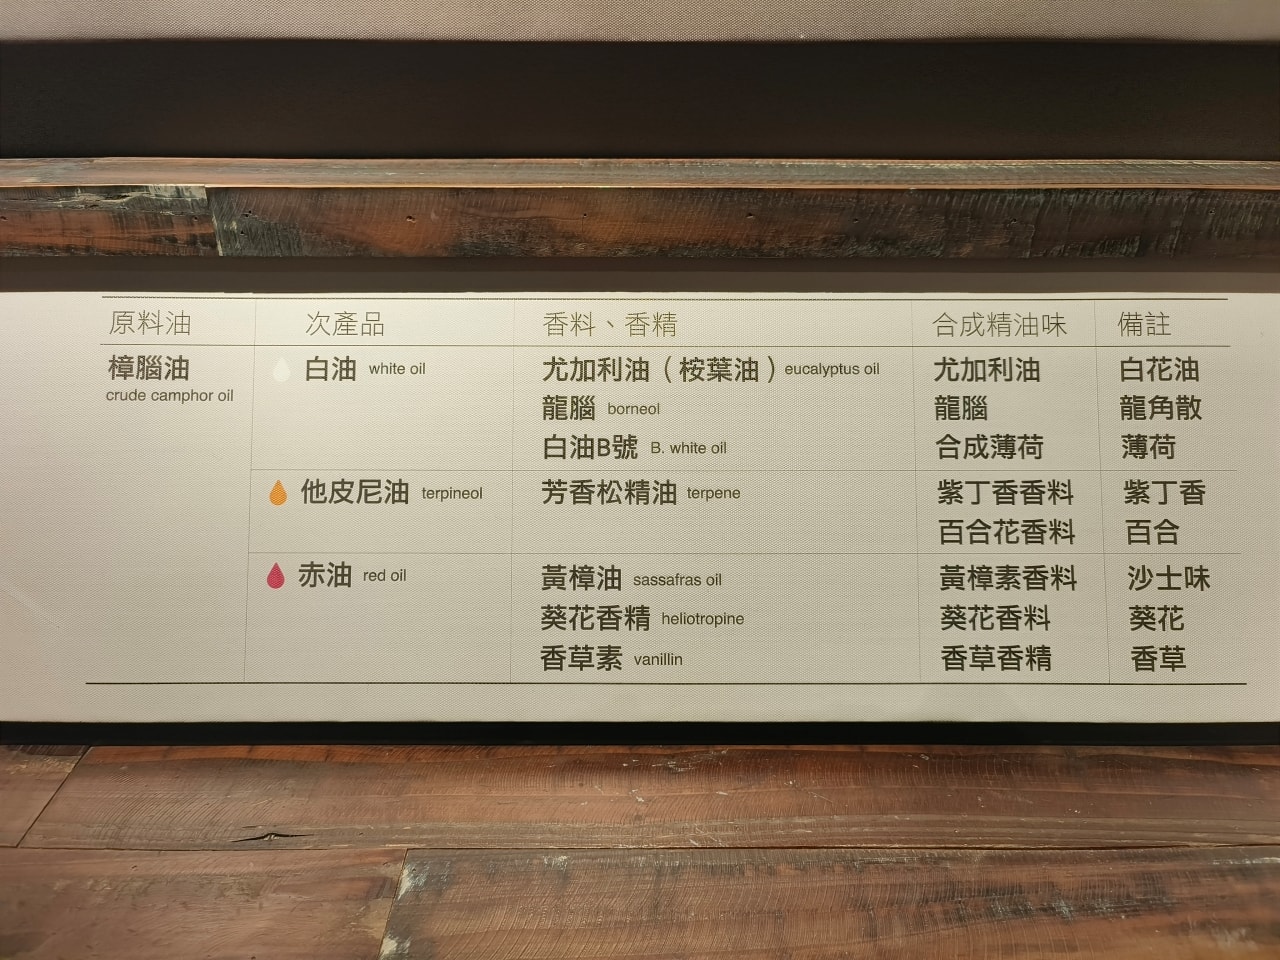 原料油 次產品 香料、香精 合成精油味 備註
樟腦油 白油 white oil 尤加利油（桉葉油）eucalyptus oil 尤加利油 白花油
crude camphor oil
龍腦 borneol 龍腦 龍角散
白油B號 B. white oil 合成薄荷 薄荷
他皮尼油 terpineol 芳香松精油 terpene 紫丁香香料 紫丁香
百合花香料 百合
赤油 red oil 黃樟油 sassafras oil 黃樟素香料 沙士味
葵花香精 heliotropine 葵花香料 葵花
香草素 vanillin 香草香精 香草